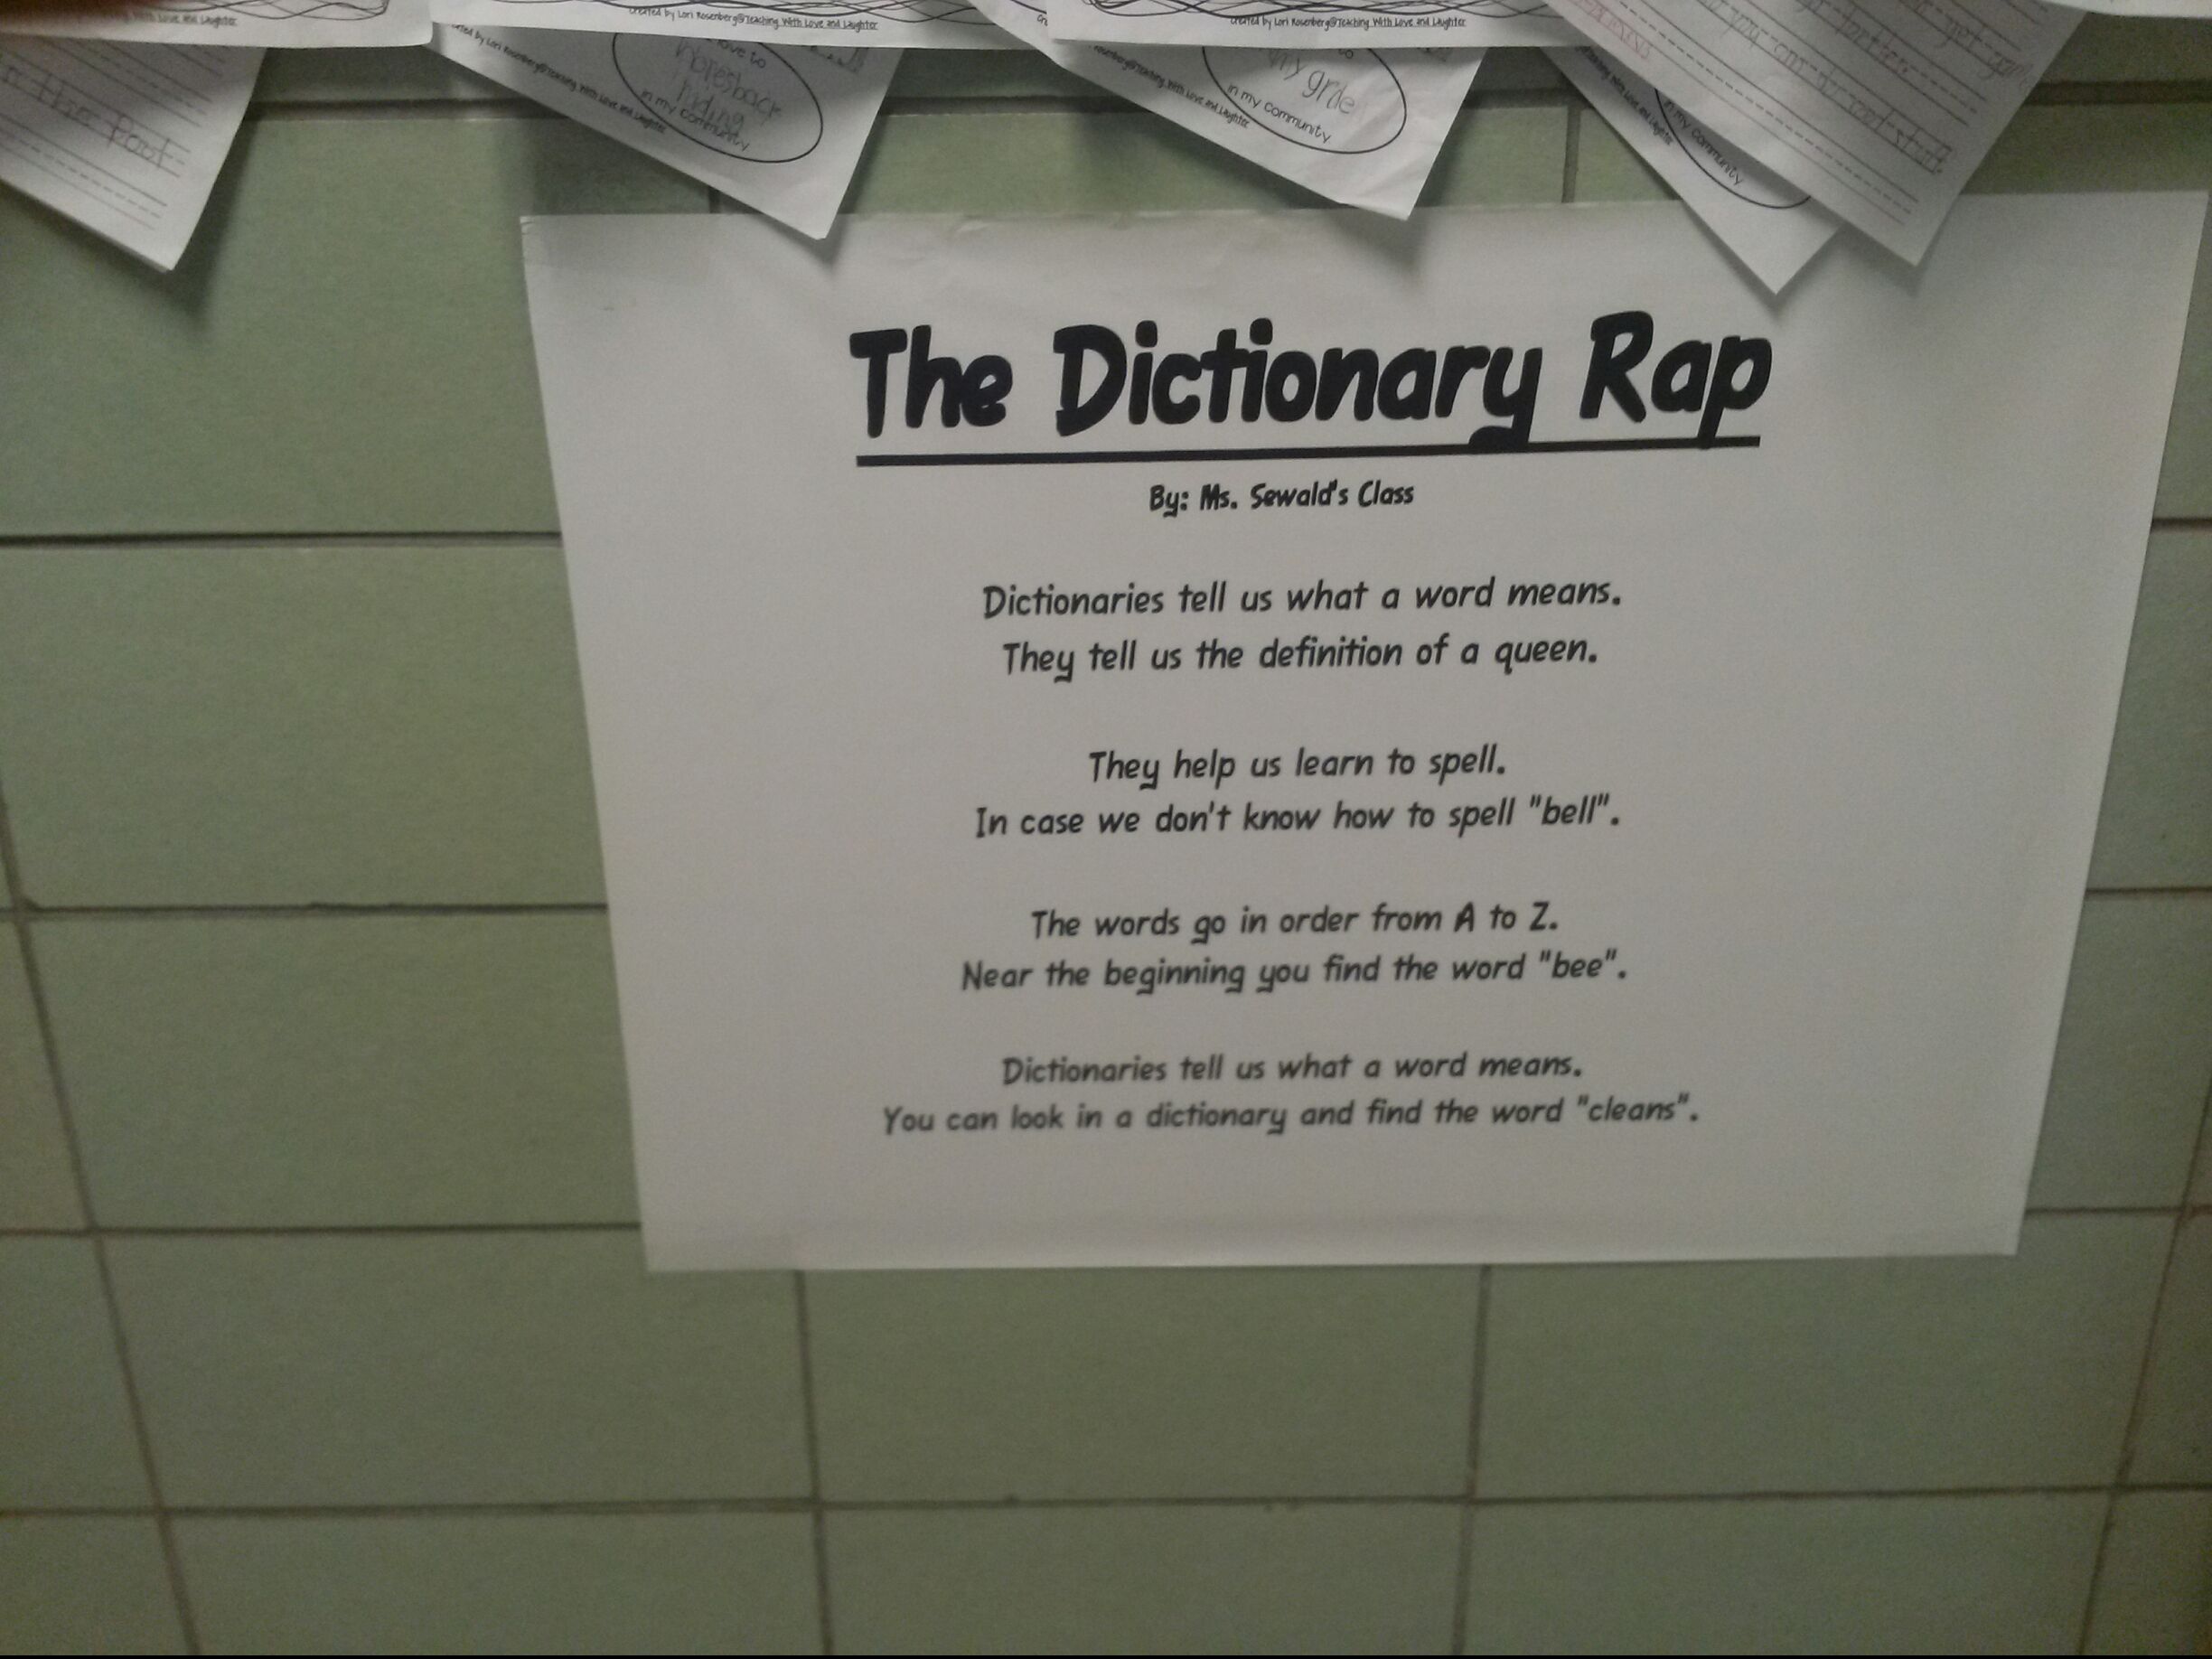 With Love and Laughter
Created by Lori Rosenberg@Teaching With Love and Laughter
Created by Lori Rosenberg@Teaching With Love and Laughter
Poot
love to
horesback
riding
in my community
Rosenberg@Teaching With Love and Laughter
to
my grde
in my community
Rosenberg@Teaching With Love and Laughter
in my community
The Dictionary Rap
By: Ms. Sewald's Class
Dictionaries tell us what a word means.
They tell us the definition of a queen.
They help us learn to spell.
In case we don't know how to spell "bell".
The words go in order from A to Z.
Near the beginning you find the word "bee".
Dictionaries tell us what a word means.
You can look in a dictionary and find the word "cleans".